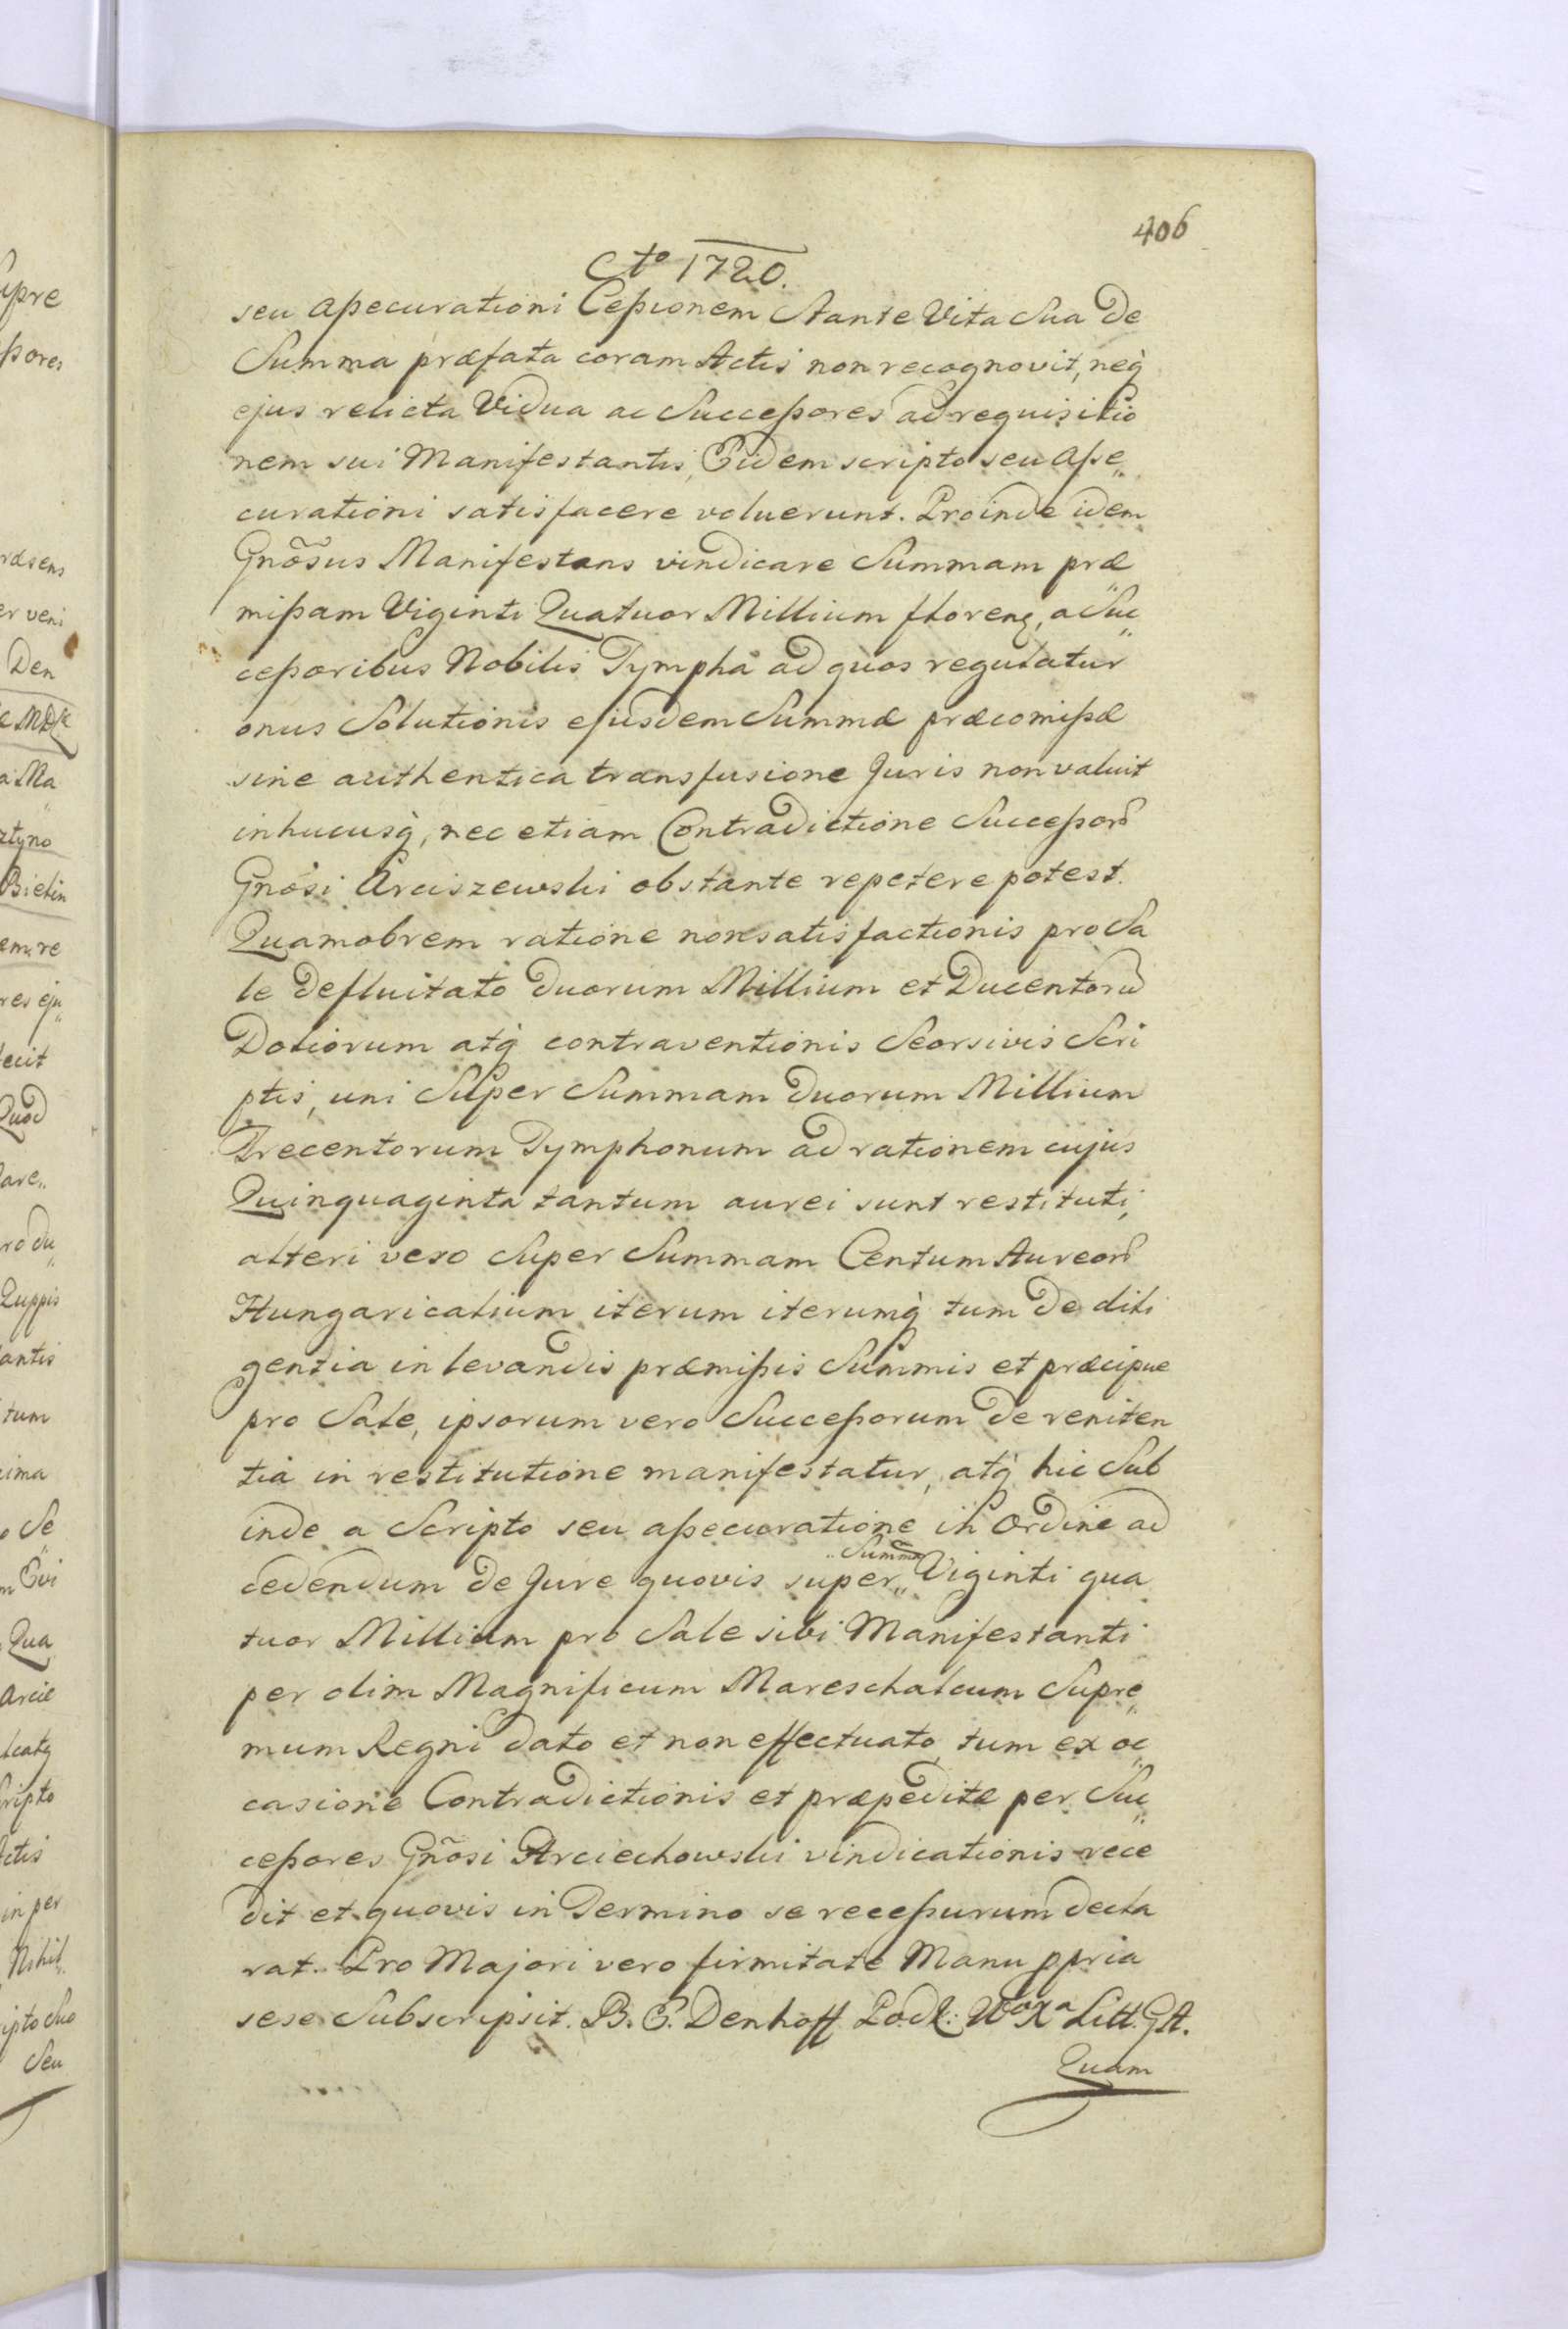 406
Cto 1720.
seu aßecurationi Ceßionem Stante Vita Sua De
Summa præfata coram Actis non recognovit, neq̀
ejus relicta Vidua ac Succeßores ad requisitio
nem sui Manifestantis, Eidem scripto seu Aße„
curationi satisfacere voluerunt. Proinde idem
Gnõsus Manifestans vindicare Summam præ
mißam Viginti Quatuor Millium floren, a Suc„
ceßoribus Nobilis Tympha ad quos regulatur
onus Solutionis ejusdem Summæ præcomißæ
sine authentica transfusione Juris non valuit
inhucusq̀, nec etiam Contradictione Succeßorũ
Gnõsi Arciszewski obstante repetere potest.
Quamobrem ratione nonsatisfactionis pro Sa
le defluitato Duorum Millium et Ducentorũ
Doliorum atq̀ contraventionis Seorsivis Scri
ptis, uni Super Summam Duorum Millium
Trecentorum Tymphonum ad rationem cujus
Quinquaginta tantum aurei sunt restituti,
alteri vero Super Summam Centum Aureorũ
Hungaricalium iterum iterumq̀ tum De dili
gentia in levandis præmißis Summis et præcipue
pro Sale, ipsorum vero Succeßorum De reniten
tia in restitutione manifestatur, atq̀ hic Sub
inde a Scripto seu aßecuratione in Ordine ad
cedendum de Jure quovis super „Summa„ Viginti qua
tuor Millium pro Sale sibi Manifestanti
per olim Magnificum Mareschalcum Supre„
mum Regni dato et non effectuato, tum ex oc„
casione Contradictionis et præpeditæ per Suc„
ceßores Gnõsi Arciechowski vindicationis rece
dit et quovis in Termino se receßurum decla
rat. Pro Majori vero firmitate Manu ppria
sese Subscripsit. B. E. Denhoff Podk: WoXa Litt. GA.
Quam